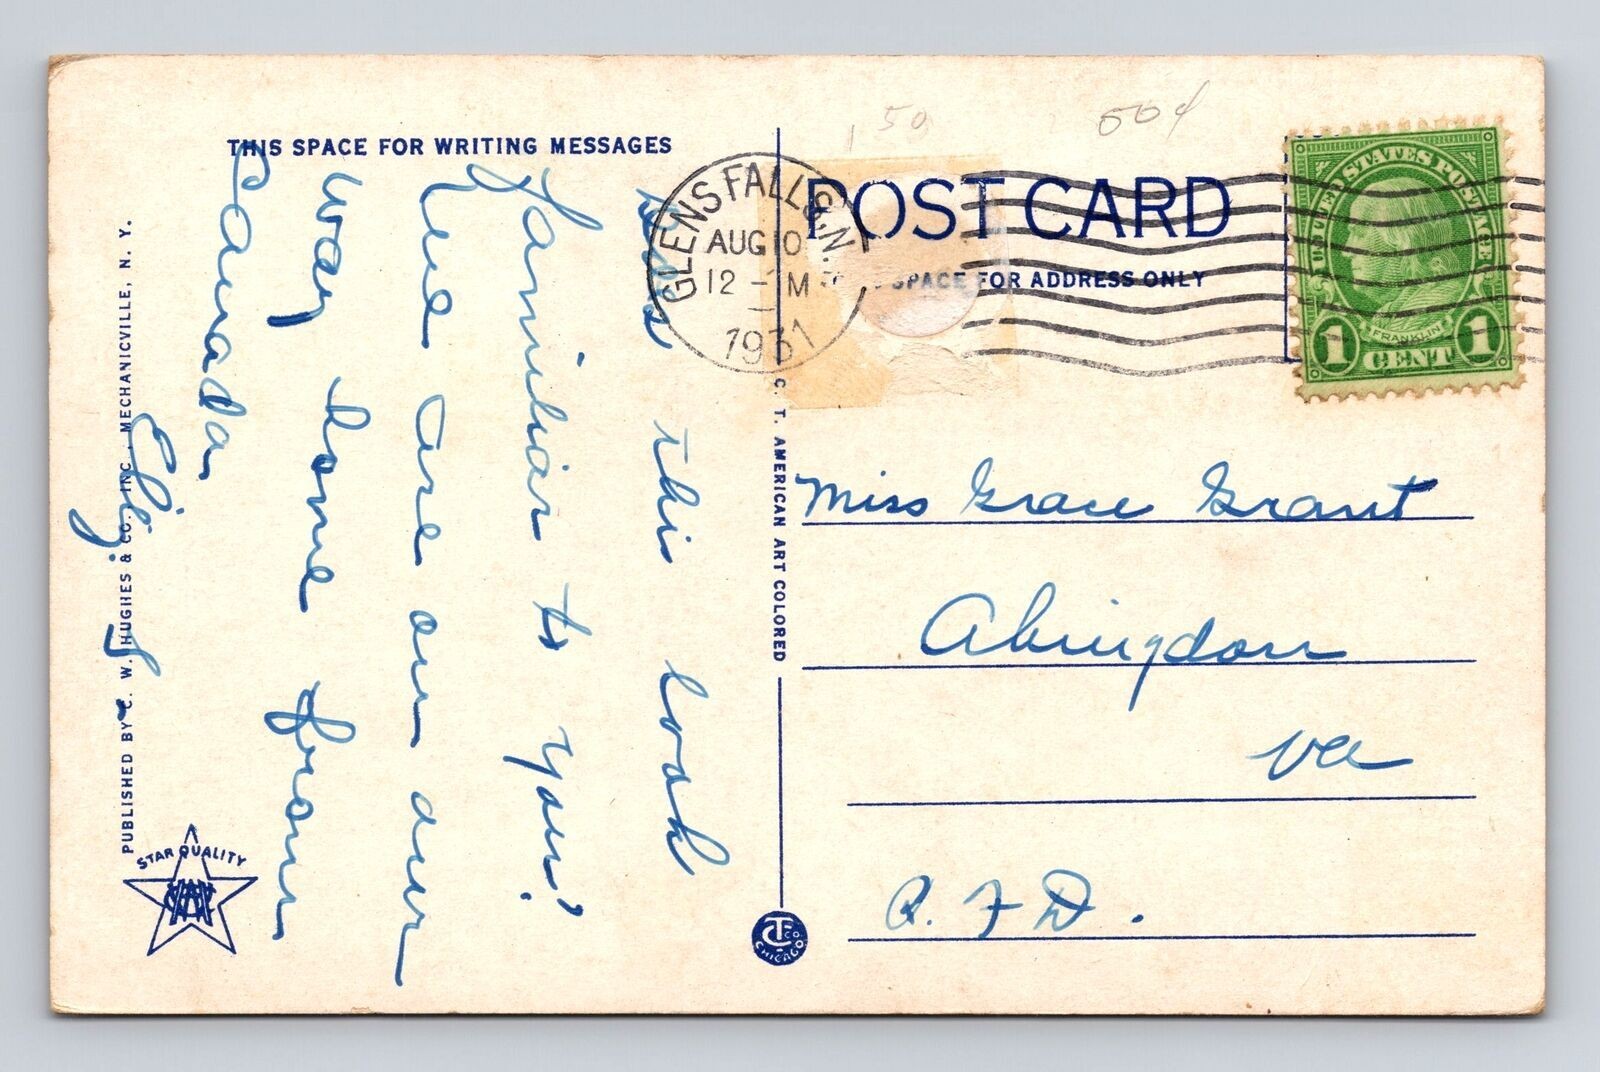 THIS SPACE FOR WRITING MESSAGES
Does this look
familiar to you?
We are on our
way home from
Canada.
Eliz. S.
PUBLISHED BY C. W. HUGHES & CO. INC., MECHANICVILLE, N. Y.
STAR QUALITY
GLENS FALLS, N.Y.
AUG 10
12 - M
1931
C. T. AMERICAN ART COLORED
CT CO. CHICAGO
150
50¢
POST CARD
SPACE FOR ADDRESS ONLY
UNITED STATES POSTAGE
FRANKLIN
1 CENT 1
Miss Grace Grant
Abingdon
Va
R. F D.